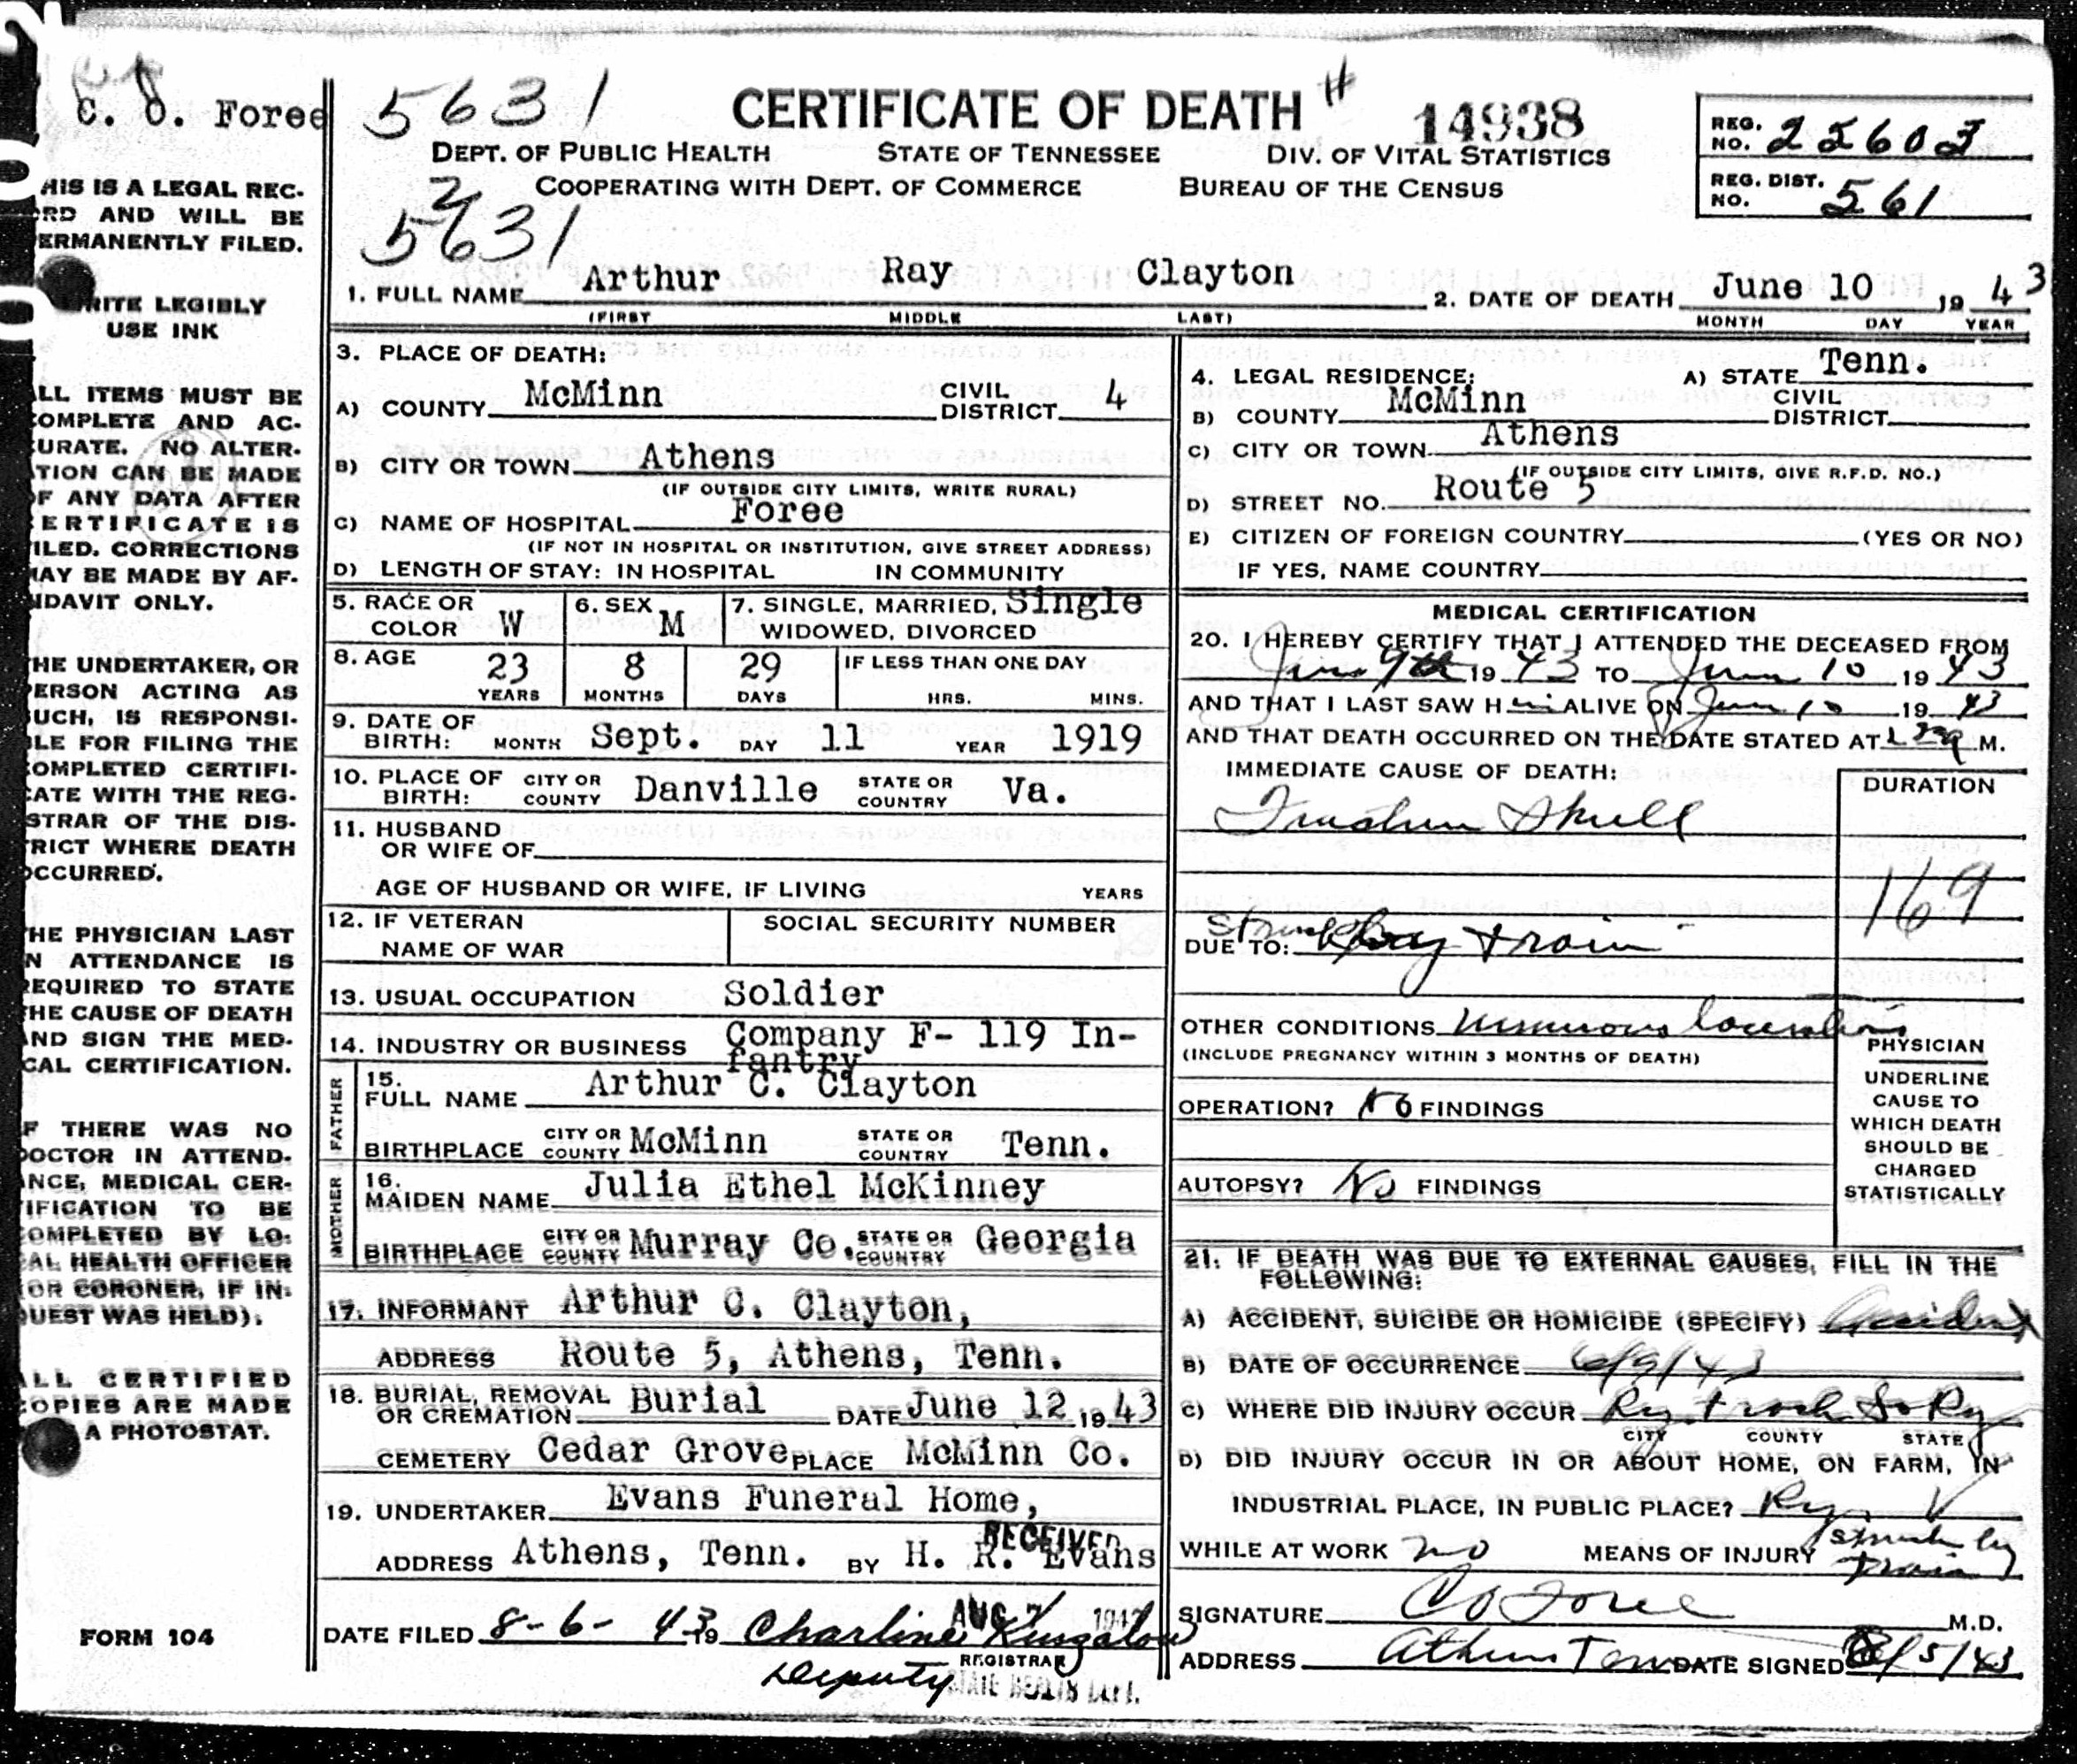 C. O. Foree
5631
CERTIFICATE OF DEATH
14938
DEPT. OF PUBLIC HEALTH STATE OF TENNESSEE DIV. OF VITAL STATISTICS
COOPERATING WITH DEPT. OF COMMERCE BUREAU OF THE CENSUS
2
5631
REG. NO. 22603
REG. DIST. NO. 561
HIS IS A LEGAL REC-
ORD AND WILL BE
ERMANENTLY FILED.
RITE LEGIBLY
USE INK
ALL ITEMS MUST BE
COMPLETE AND AC-
CURATE. NO ALTER-
ATION CAN BE MADE
OF ANY DATA AFTER
CERTIFICATE IS
ILED. CORRECTIONS
MAY BE MADE BY AF-
IDAVIT ONLY.
HE UNDERTAKER, OR
PERSON ACTING AS
UCH, IS RESPONSI-
BLE FOR FILING THE
COMPLETED CERTIFI-
CATE WITH THE REG-
STRAR OF THE DIS-
RICT WHERE DEATH
OCCURRED.
HE PHYSICIAN LAST
N ATTENDANCE IS
REQUIRED TO STATE
HE CAUSE OF DEATH
AND SIGN THE MED-
CAL CERTIFICATION.
F THERE WAS NO
DOCTOR IN ATTEND-
ANCE, MEDICAL CER-
IFICATION TO BE
COMPLETED BY LO-
AL HEALTH OFFICER
(OR CORONER, IF IN-
QUEST WAS HELD).
ALL CERTIFIED
COPIES ARE MADE
A PHOTOSTAT.
FORM 104
1. FULL NAME Arthur Ray Clayton 2. DATE OF DEATH June 10 19 43
(FIRST MIDDLE LAST) MONTH DAY YEAR
3. PLACE OF DEATH:
A) COUNTY McMinn CIVIL DISTRICT 4
B) CITY OR TOWN Athens
(IF OUTSIDE CITY LIMITS, WRITE RURAL)
C) NAME OF HOSPITAL Foree
(IF NOT IN HOSPITAL OR INSTITUTION, GIVE STREET ADDRESS)
D) LENGTH OF STAY: IN HOSPITAL IN COMMUNITY
4. LEGAL RESIDENCE: A) STATE Tenn.
B) COUNTY McMinn CIVIL DISTRICT
C) CITY OR TOWN Athens
(IF OUTSIDE CITY LIMITS, GIVE R.F.D. NO.)
D) STREET NO. Route 5
E) CITIZEN OF FOREIGN COUNTRY (YES OR NO)
IF YES, NAME COUNTRY
5. RACE OR COLOR W 6. SEX M 7. SINGLE, MARRIED, WIDOWED, DIVORCED Single
8. AGE 23 YEARS 8 MONTHS 29 DAYS IF LESS THAN ONE DAY HRS. MINS.
9. DATE OF BIRTH: MONTH Sept. DAY 11 YEAR 1919
10. PLACE OF BIRTH: CITY OR COUNTY Danville STATE OR COUNTRY Va.
11. HUSBAND OR WIFE OF
AGE OF HUSBAND OR WIFE, IF LIVING YEARS
12. IF VETERAN NAME OF WAR SOCIAL SECURITY NUMBER
13. USUAL OCCUPATION Soldier
14. INDUSTRY OR BUSINESS Company F- 119 In-
fantry
FATHER
15. FULL NAME Arthur C. Clayton
BIRTHPLACE CITY OR COUNTY McMinn STATE OR COUNTRY Tenn.
MOTHER
16. MAIDEN NAME Julia Ethel McKinney
BIRTHPLACE CITY OR COUNTY Murray Co. STATE OR COUNTRY Georgia
17. INFORMANT Arthur C. Clayton,
ADDRESS Route 5, Athens, Tenn.
18. BURIAL, REMOVAL OR CREMATION Burial DATE June 12 19 43
CEMETERY Cedar Grove PLACE McMinn Co.
19. UNDERTAKER Evans Funeral Home,
ADDRESS Athens, Tenn. BY H. R. Evans
RECEIVED
AUG 7 194
DATE FILED 8-6- 43 19 Charline
REGISTRAR
Deputy
MEDICAL CERTIFICATION
20. I HEREBY CERTIFY THAT I ATTENDED THE DECEASED FROM
June 9th 19 43 TO June 10 19 43
AND THAT I LAST SAW H im ALIVE ON June 10 19 43
AND THAT DEATH OCCURRED ON THE DATE STATED AT M.
IMMEDIATE CAUSE OF DEATH: DURATION
Fracture Skull
169
DUE TO: Struck by train
OTHER CONDITIONS numerous lacerations
(INCLUDE PREGNANCY WITHIN 3 MONTHS OF DEATH)
OPERATION? No FINDINGS
AUTOPSY? No FINDINGS
PHYSICIAN
UNDERLINE
CAUSE TO
WHICH DEATH
SHOULD BE
CHARGED
STATISTICALLY
21. IF DEATH WAS DUE TO EXTERNAL CAUSES, FILL IN THE
FOLLOWING:
A) ACCIDENT, SUICIDE OR HOMICIDE (SPECIFY) Accident
B) DATE OF OCCURRENCE 6/9/43
C) WHERE DID INJURY OCCUR Ry. track So Ry
CITY COUNTY STATE
D) DID INJURY OCCUR IN OR ABOUT HOME, ON FARM, IN
INDUSTRIAL PLACE, IN PUBLIC PLACE? Ry.
WHILE AT WORK no MEANS OF INJURY struck by
train
SIGNATURE C O Foree M.D.
ADDRESS Athens Tenn DATE SIGNED 8/5/43